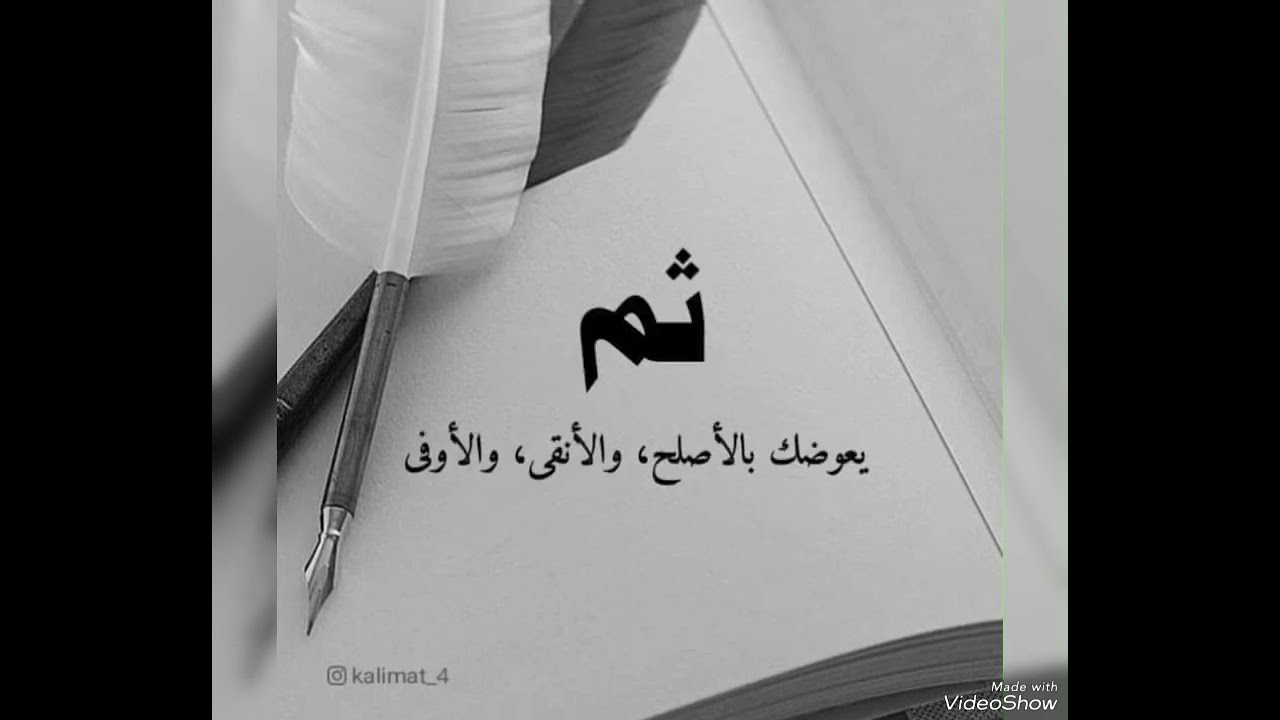 ثم
يعوضك بالأصلح، والأنقى، والأوفى
kalimat_4
Made with
VideoShow